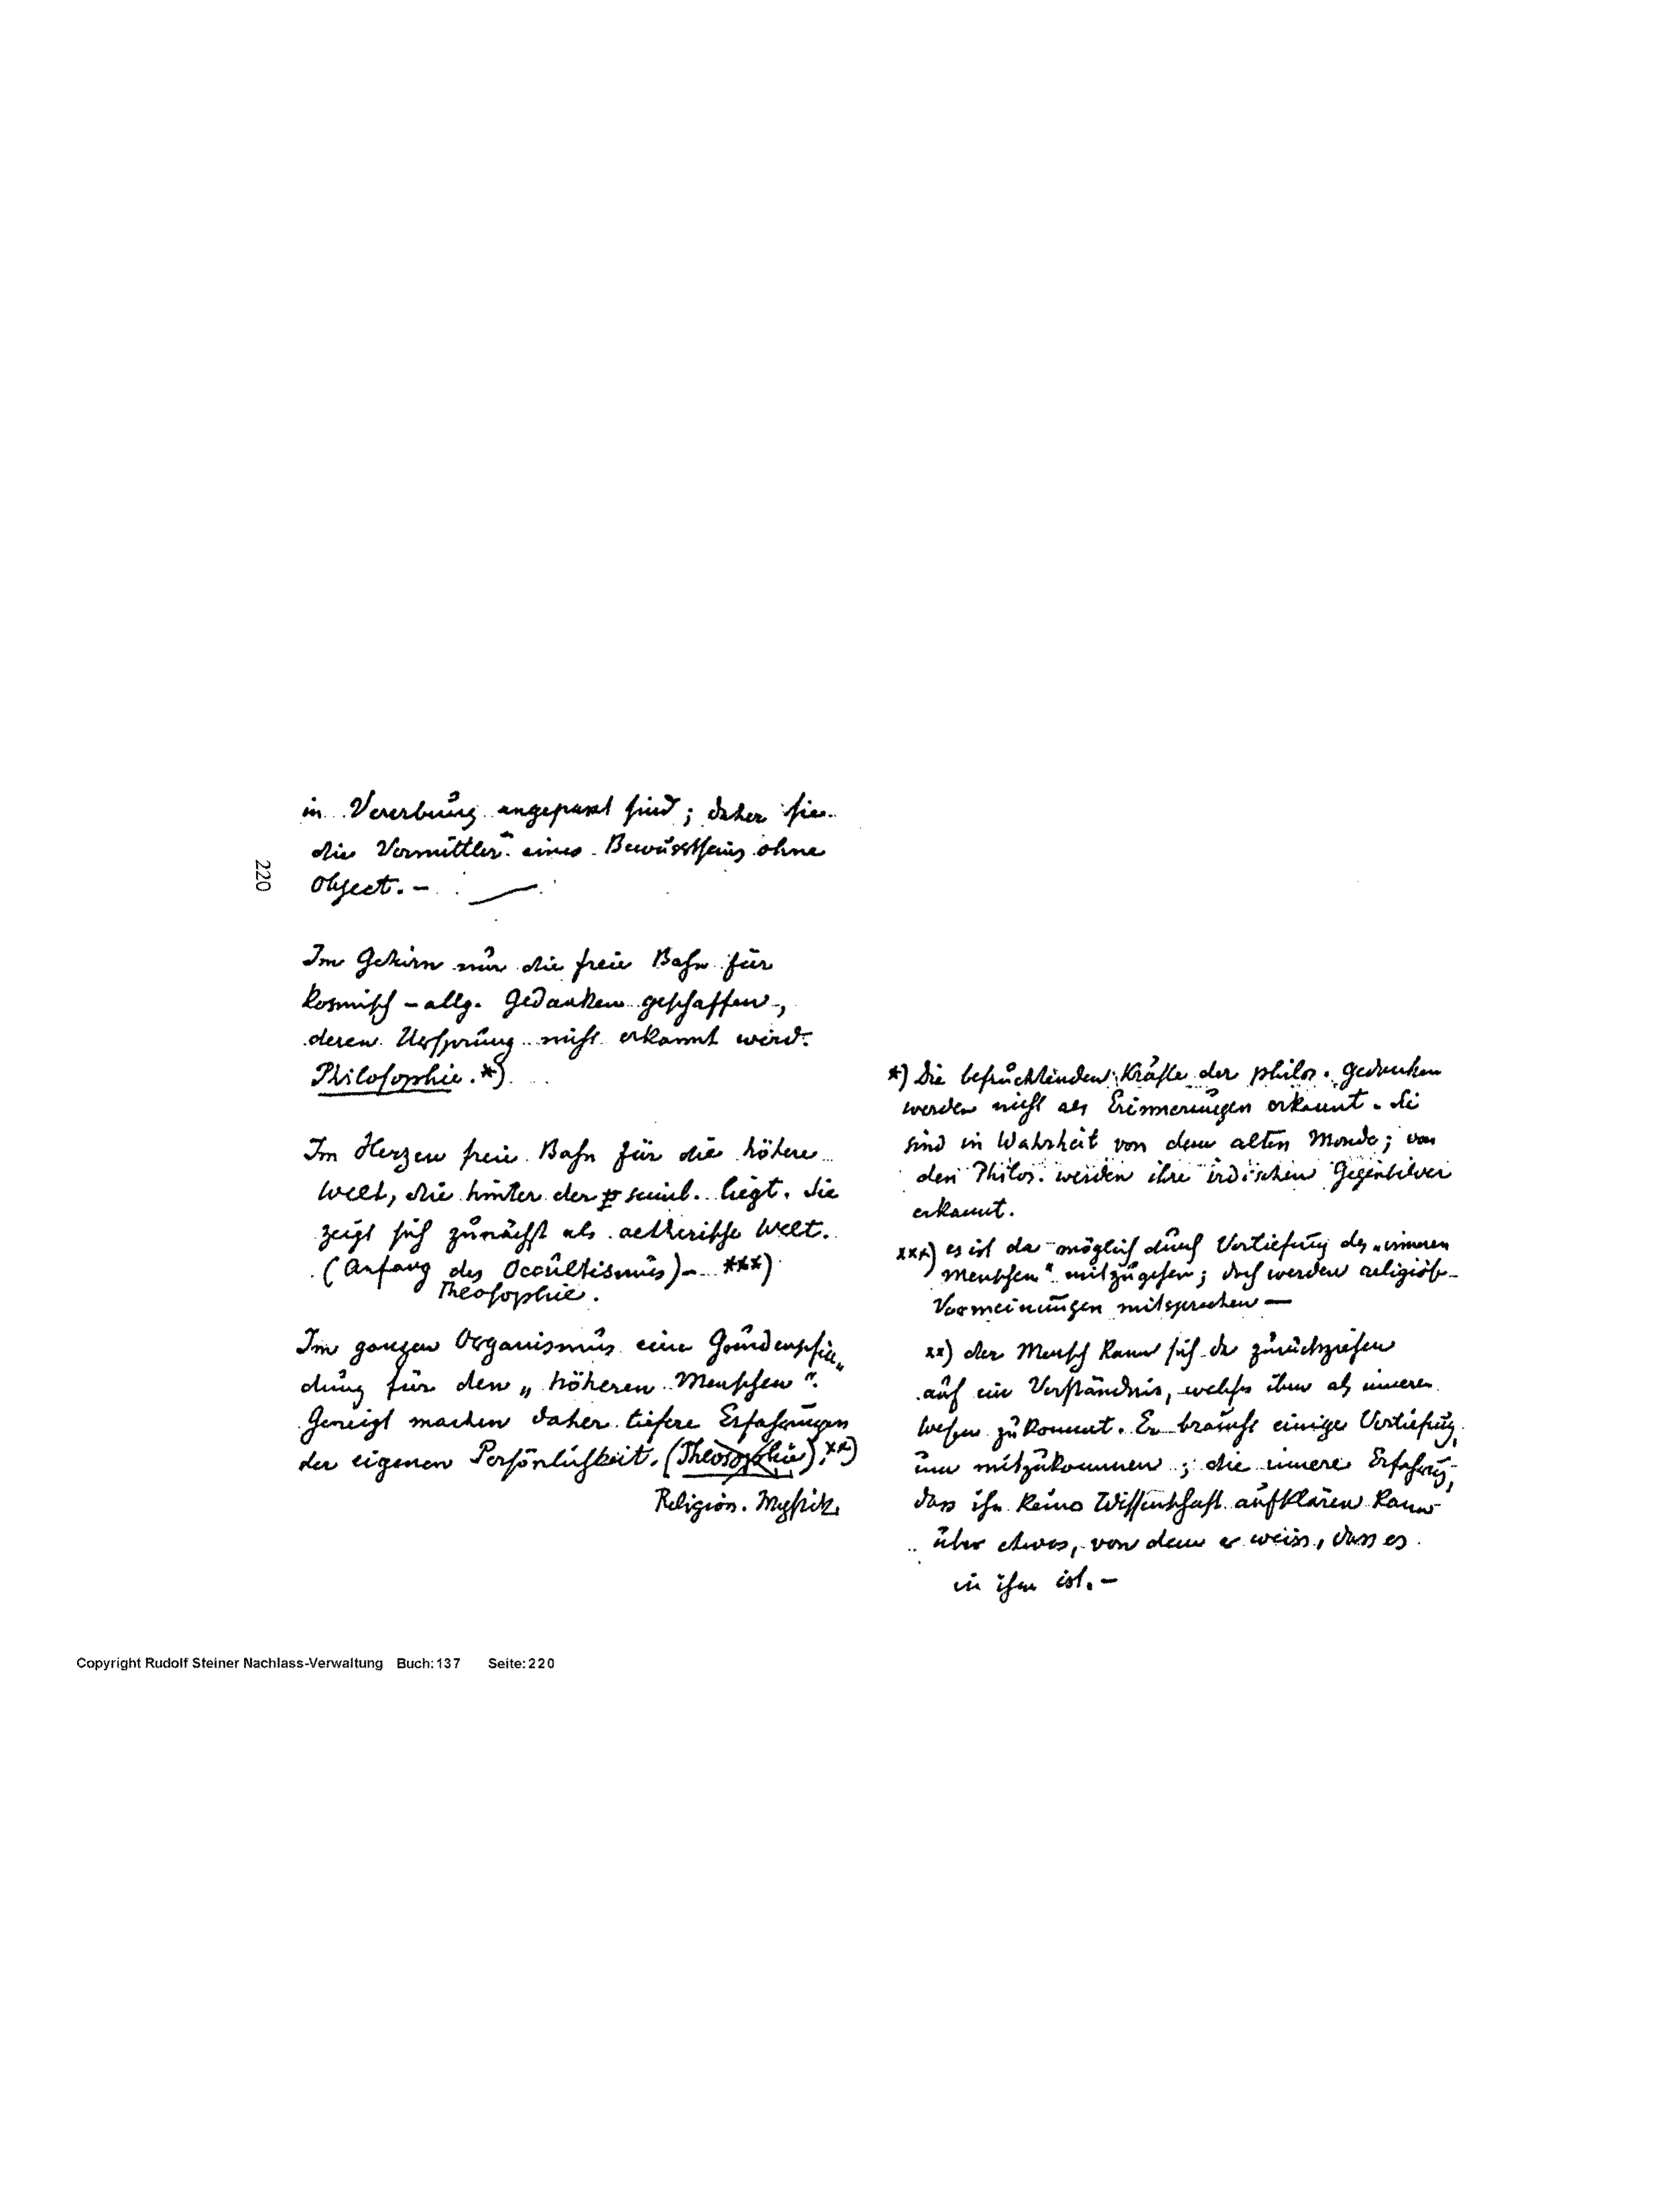 in Vererbung angepasst sind; daher sie
die Vermittler eines Bewusstseins ohne
Object. –
220
Im Gehirn nur die freie Bahn für
kosmisch – allg. Gedanken geschaffen,
deren Ursprung nicht erkannt wird.
Philosophie. *)
Im Herzen freie Bahn für die höhere
Welt, die hinter der sinnl. liegt. Sie
zeigt sich zunächst als aetherische Welt.
(Anfang des Occultismus) – ***)
Theosophie.
Im ganzen Organismus eine Grundempfin„
dung für den „höheren Menschen“.
Geneigt machen daher tiefere Erfahrungen
der eigenen Persönlichkeit. (Theosophie). **)
Religion. Mystik.
*) Die befruchtenden Kräfte der philos. Gedanken
werden nicht als Erinnerungen erkannt. Sie
sind in Wahrheit von dem alten Monde; von
den Philos. werden ihre irdischen Gegenbilder
erkannt.
xxx) es ist da möglich durch Vertiefung des „inneren
Menschen“ mitzugehen; doch werden religiöse
Vormeinungen mitsprechen —
xx) der Mensch kann sich da zurückziehen
auf ein Verständnis, welches ihm als innerem
Wesen zukommt. Er braucht einige Vertiefung,
um mitzukommen; die innere Erfahrung,
dass ihn keine Wissenschaft aufklären kann
über etwas, von dem er weiss, dass es
in ihm ist. –
Copyright Rudolf Steiner Nachlass-Verwaltung Buch: 137 Seite: 220